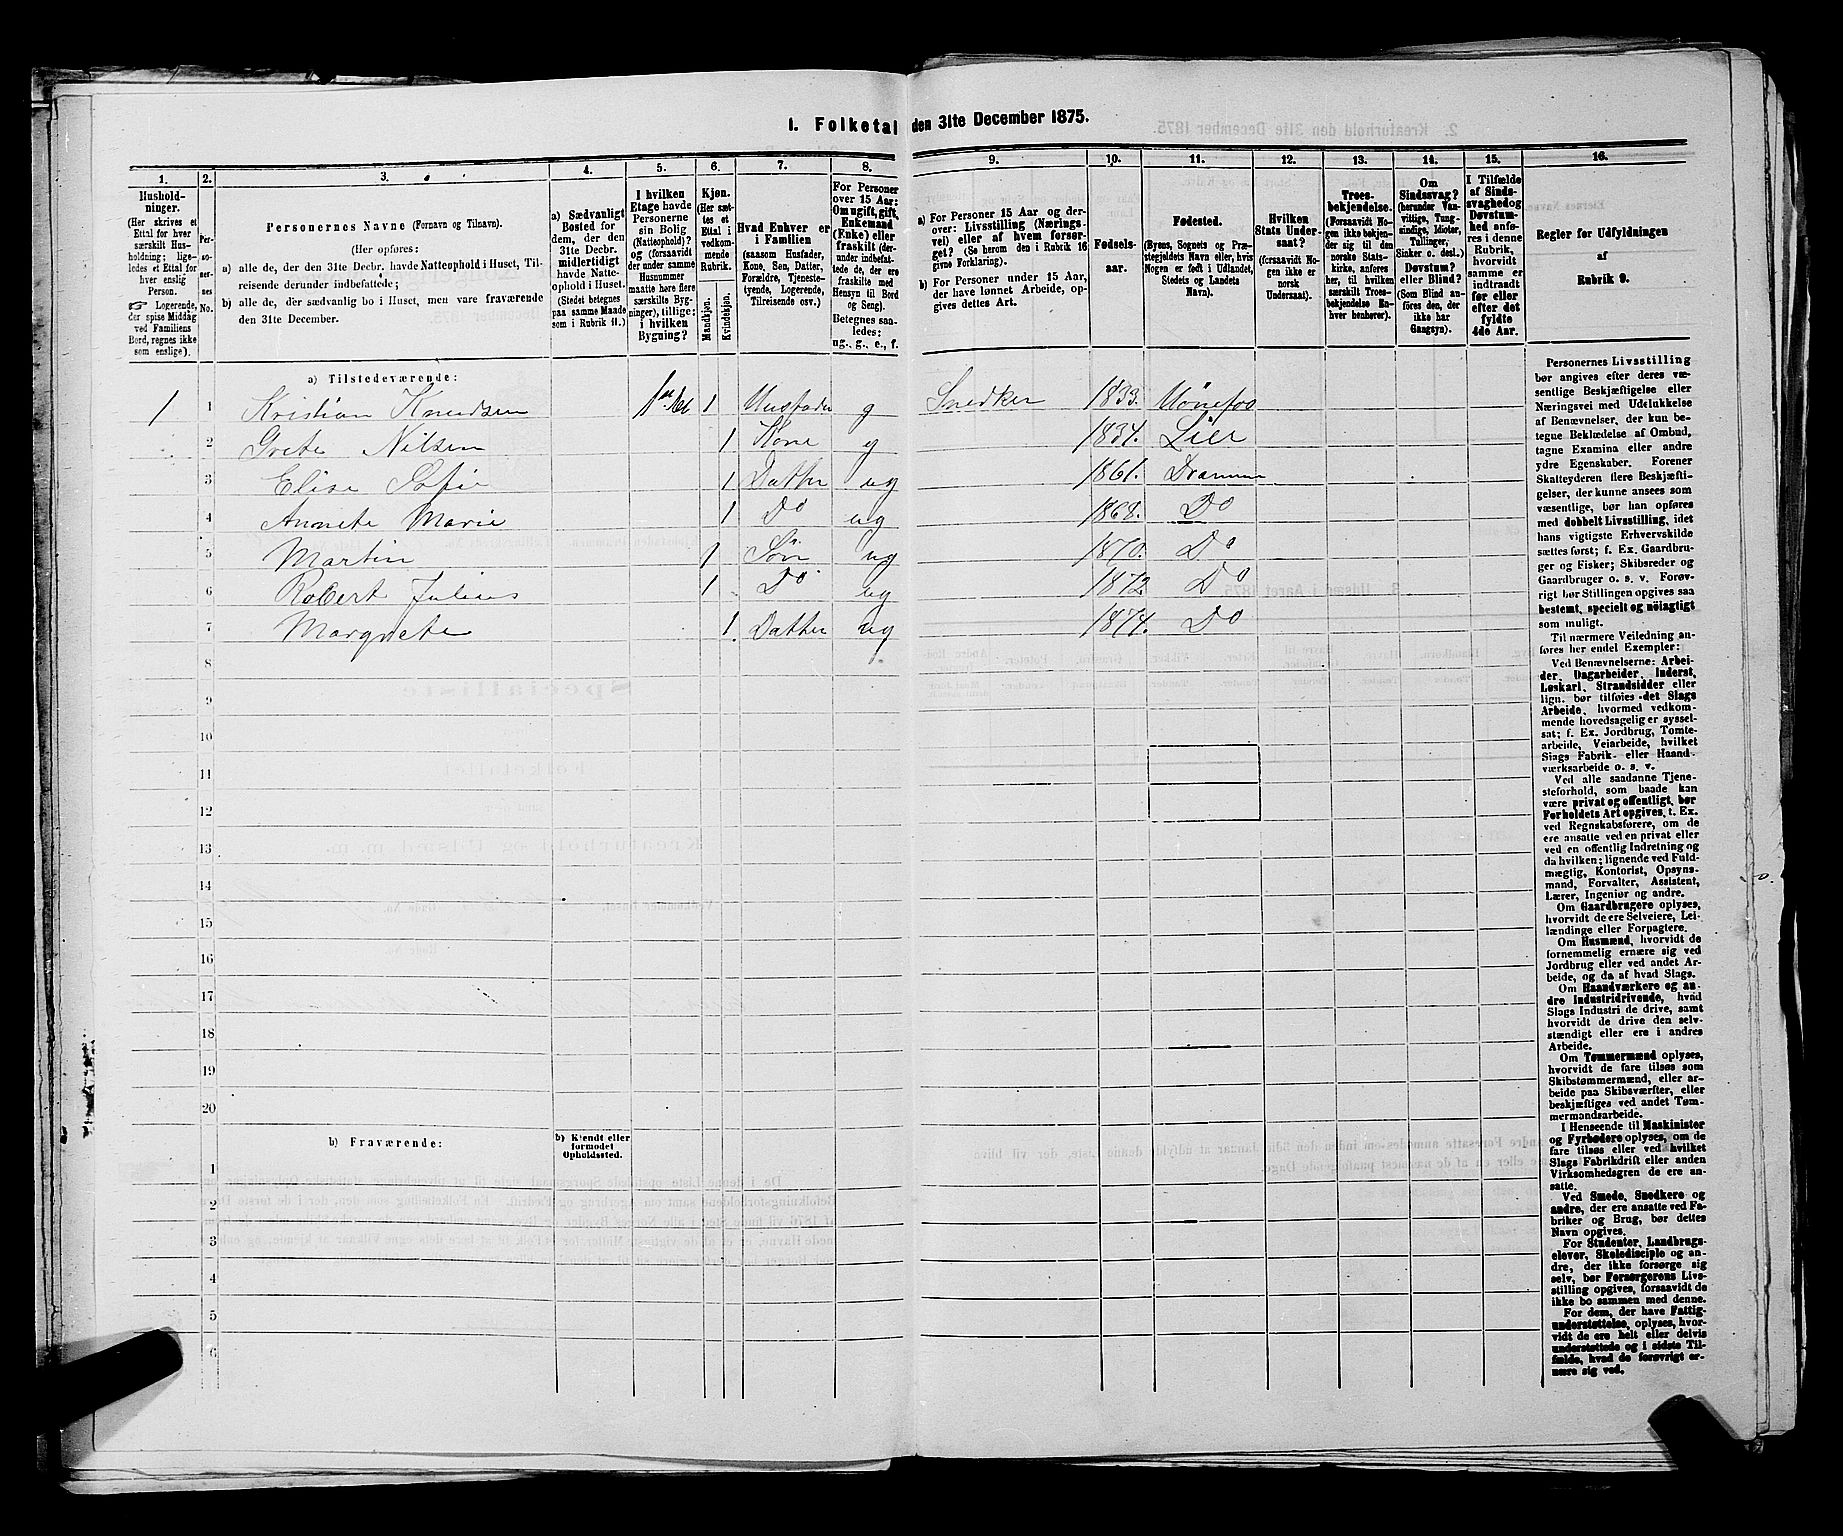 1. Folketal den 31te December 1875.
1. 2. 3. 4. 5. 6. 7. 8. 9. 10. 11. 12. 13. 14. 15. 16.
Hushold-
ninger.
(Her skrives et
Ettal for hver
særskilt Hus-
holdning; lige-
ledes et Ettal for
hver enslig
Person.
☞ Logerende,
der spise Middag
ved Familiens
Bord, regnes ikke
som enslige).
Per-
so-
ner-
nes
No.
Personernes Navne (Fornavn og Tilnavn).
(Her opføres:
a) alle de, der den 31te Decbr. havde Natteophold i Huset, Til-
reisende derunder indbefattede;
b) alle de, der sædvanlig bo i Huset, men vare fraværende
den 31te December.
a) Sædvanligt
Bosted for
dem, der den
31te Decbr.
midlertidigt
havde Natte-
ophold i Huset.
(Stedet betegnes
paa samme Maade
som i Rubrik 11.)
I hvilken
Etage havde
Personerne
sin Bolig
(Natteophold)?
og (forsaavidt
der under samme
Husnummer
maatte høre flere
særskilte Byg-
ninger), tillige:
i hvilken
Bygning?
Kjøn.
(Her sæt-
tes et
Ettal i
vedkom-
mende
Rubrik.
Mandkjøn.
Kvindekjøn.
Hvad Enhver er
i Familien
(saasom Husfader,
Kone, Søn, Datter,
Forældre, Tjeneste-
tyende, Logerende,
Tilreisende osv.)
For Personer
over 15 Aar:
Om ugift, gift,
Enkemand
(Enke) eller
fraskilt (der-
under indbefat-
tede de, der ere
fraskilte med
Hensyn til Bord
og Seng).
Betegnes saa-
ledes:
ug., g., e., f.
a) For Personer 15 Aar og der-
over: Livsstilling (Nærings-
vei) eller af hvem forsør-
get? (Se herom den i Rubrik 16
givne Forklaring).
b) For Personer under 15 Aar,
der have lønnet Arbeide, op-
gives dettes Art.
Fødsels-
aar.
Fødested.
(Byens, Sognets og Præ-
stegjeldets Navn eller, hvis
Nogen er født i Udlandet,
Stedets og Landets
Navn).
Hvilken
Stats Under-
saat?
(forsaavidt No-
gen ikke er
norsk
Undersaat).
Troes-
bekjendelse.
(Forsaavidt No-
gen ikke bekjen-
der sig til den
norske Stats-
kirke, anføres
her, til hvilken
særskilt Troes-
bekjendelse En-
hver henhører).
Om
Sindssvag?
(herunder Van-
vittige, Tung-
sindige, Idioter,
Tullinger,
Sinker o. desl.)
Døvstum?
eller Blind?
(Som Blind an-
føres den, der
ikke har
Gangsyn).
I Tilfælde
af Sinds-
svaghed og
Døvstum-
hed anfø-
res i denne
Rubrik,
hvorvidt
samme er
indtraadt
før eller
efter det
fyldte
4de Aar.
Regler for Udfyldningen
af
Rubrik 9.
a) Tilstedeværende:
1 1 Kristian Knudsen 1 g Snedker 1833.
2 Grete Nilsen 1 Kone g 1834. Lier
3 Elise Sofie 1 Datter ug 1861. Drammen
4 Annete Marie 1 Do ug 1868. Do
5 Martin 1 Søn ug 1870. Do
6 Robert Julius 1 Do ug 1872. Do
7 Margrete 1 Datter ug 1874. Do
8
9
10
11
12
13
14
15
16
17
18
19
20
b) Fraværende:
b) Kjendt eller
formodet
Opholdssted.
1
2
3
4
5
6
Personernes Livsstilling
bør angives efter deres væ-
sentlige Beskjæftigelse eller
Næringsvei med Udelukkelse
af Benævnelser, der kun be-
tegne Beklædelse af Ombud,
tagne Examina eller andre
ydre Egenskaber. Forener
Skatteyderen flere Beskjæfti-
gelser, der kunne ansees som
væsentlige, bør han opføres
med dobbelt Livsstilling, idet
hans vigtigste Erhvervskilde
sættes først; f. Ex. Gaardbru-
ger og Fisker; Skibsreder og
Gaardbruger o. s. v. Forøv-
rigt bør Stillingen opgives saa
bestemt, specielt og nøiagtigt
som muligt.
Til nærmere Veiledning an-
føres her endel Exempler:
Ved Benævnelserne: Arbei-
der, Dagarbeider, Inderst,
Løskarl, Strandsidder eller
lign. bør tilføies det Slags
Arbeide, hvormed vedkom-
mende hovedsagelig er syssel-
sat; f. Ex. Jordbrug, Tomte-
arbeide, Veiarbeide, hvilket
Slags Fabrik- eller Haand-
værksarbeide o. s. v.
Ved alle saadanne Tjene-
steforhold, som baade kan
være privat og offentligt, bør
Forholdets Art opgives, t. Ex.
ved Regnskabsførere, om de
ere ansatte ved en privat eller
ved en offentlig Indretning og
da hvilken; lignende ved Fuld-
mægtig, Kontorist, Opsyns-
mand, Forvalter, Assistent,
Lærer, Ingeniør og andre.
Om Gaardbrugere oplyses,
hvorvidt de ere Selveiere, Lei-
lændinge eller Forpagtere.
Om Husmænd, hvorvidt de
fornemmelig ernære sig ved
Jordbrug eller ved andet Ar-
beide, og da af hvad Slags.
Om Haandværkere og an-
dre Industridrivende, hvad
Slags Industri de drive, samt
hvorvidt de drive den selv-
stændigt eller ere i andres
Arbeide.
Om Tømmermænd oplyses,
hvorvidt de fare tilsøs som
Skibstømmermænd, eller ar-
beide paa Skibsværfter, eller
beskjæftiges ved andet Tøm-
mermandsarbeide.
I Henseende til Maskinister
og Fyrbødere oplyses, om de
fare tilsøs eller ved hvilket
Slags Fabrikdrift eller anden
Virksomhedsgren de ere an-
satte.
Ved Smede, Snedkere og
andre, der ere ansatte ved Fa-
briker og Brug, bør dettes
Navn opgives.
For Studenter, Landbrugs-
elever, Skoledisciple og an-
dre, der ikke forsørge sig
selv, bør Forsørgerens Livs-
stilling opgives, forsaavidt de
ikke bo sammen med denne.
For dem, der have Fattig-
understøttelse, oplyses, hvor-
vidt de ere helt eller delvis
understøttede og i sidste Til-
fælde, hvad de forøvrigt er-
nære sig ved.